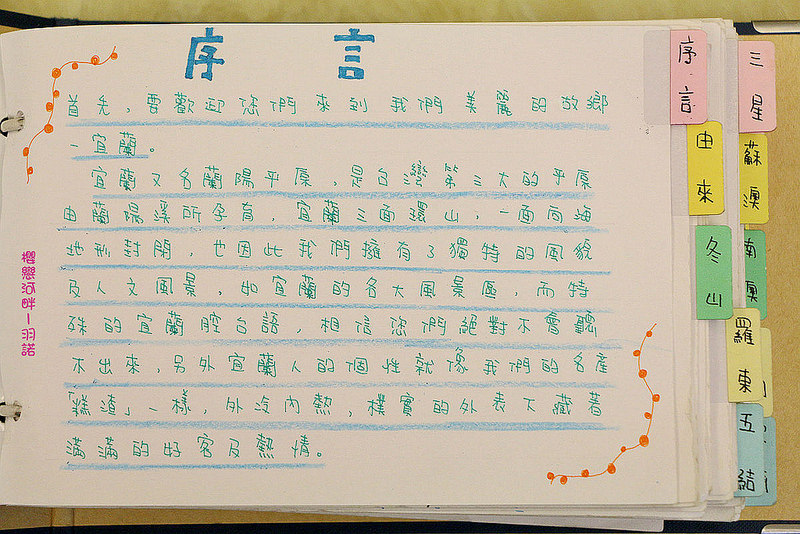 序言
首先，要歡迎您們來到我們美麗的故鄉
－宜蘭。
宜蘭又名蘭陽平原，是台灣第三大的平原
由蘭陽溪所孕育，宜蘭三面環山，一面向海
地形封閉，也因此我們擁有了獨特的風貌
及人文風景，如宜蘭的各大風景區，而特
殊的宜蘭腔台語，相信您們絕對不會聽
不出來，另外宜蘭人的個性就像我們的名產
「糕渣」一樣，外冷內熱，樸實的外表下藏著
滿滿的好客及熱情。
櫻戀河畔－羽諾
序言
由來
冬山
羅東
五結
三星
蘇澳
南澳